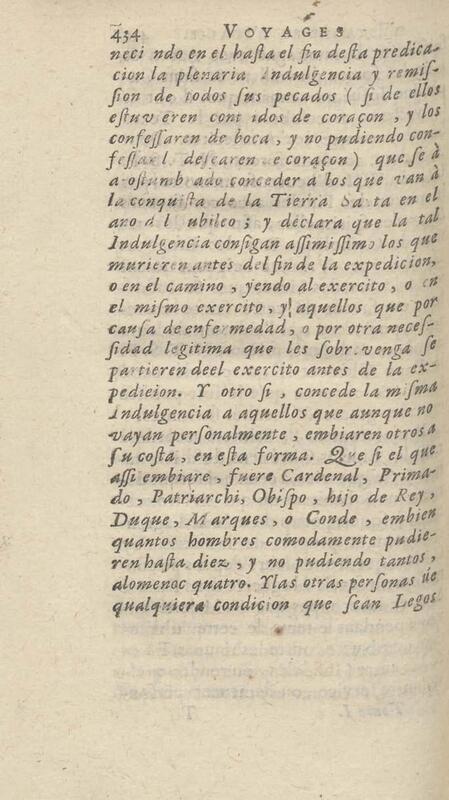 434 VOYAGES
neci ndo en el haſta el fin deſta predica-
cion la plenaria Indulgencia y remiſ-
ſion de todos ſus pecados ( ſi de ellos
eſtuv eren cont idos de coraçon , y los
confeſſaren de boca , y no pudiendo con-
feſſarl deſearen de coraçon ) que ſe à
a oſtumb ado conceder à los que van à
la conquiſta de la Tierra Santa en el
ano d l ubileo ; y declara que la tal
Indulgencia conſigan aſſimiſſimo los que
murieren antes del fin de la expedicion,
o en el camino , yendo al exercito , o en
el miſmo exercito , y aquellos que por
cauſa de enfermedad, o por otra neceſ-
ſidad legitima que les ſobr.venga ſe
partieren deel exercito antes de la ex-
pedieion. Y otro ſi , concede la miſma
Indulgencia a aquellos que aunque no
vayan perſonalmente , embiaren otros a
ſu coſta , en eſta forma. Que ſi el que
aſſi embiare , fuere Cardenal , Prima-
do , Patriarchi, Obiſpo , hijo de Rey,
Duque , Marques , o Conde , embien
quantos hombres comodamente pudie-
ren haſta diez , y no pudiendo tantos,
alomenoc quatro. Y las otras perſonas de
qualquiera condicion que ſean Legos